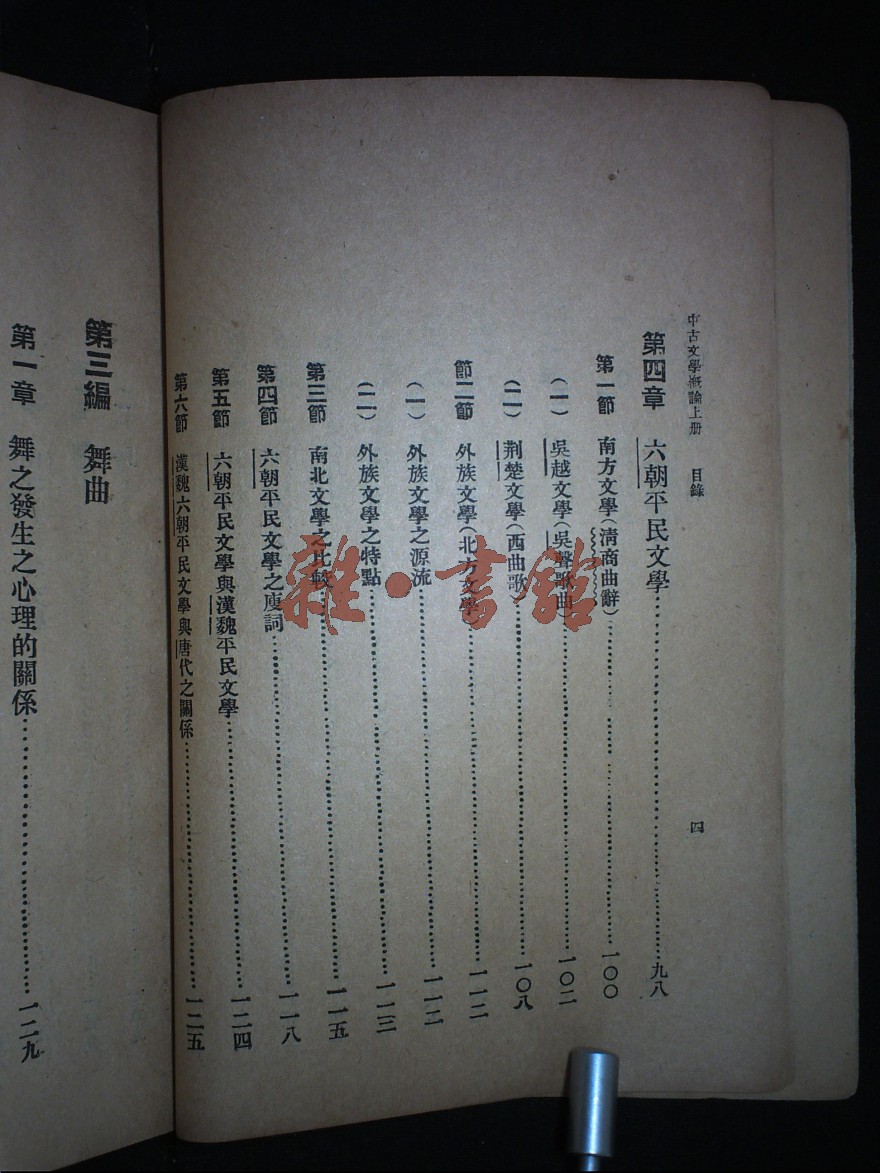 中古文學概論上册　目錄　四
第四章　六朝平民文學……九八
第一節　南方文學(清商曲辭)……一〇〇
(一)　吳越文學(吳聲歌曲)……一〇二
(二)　荆楚文學(西曲歌)……一〇八
節二節　外族文學(北方文學)……一一二
(一)　外族文學之源流……一一二
(二)　外族文學之特點……一一三
第三節　南北文學之比較……一一五
第四節　六朝平民文學之庾詞……一一八
第五節　六朝平民文學與漢魏平民文學……一二四
第六節　漢魏六朝平民文學與唐代之關係……一二五
第三編　舞曲
第一章　舞之發生之心理的關係……一二九
雜·書館